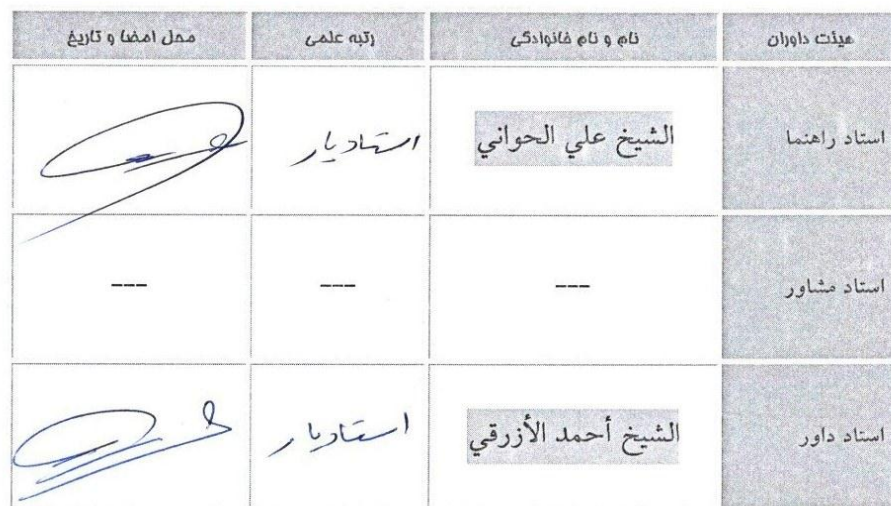 هیئت داوران نام و نام خانوادگی رتبه علمی محل امضا و تاریخ
استاد راهنما الشيخ علي الحواني استادیار
استاد مشاور --- --- ---
استاد داور الشيخ أحمد الأزرقي استادیار